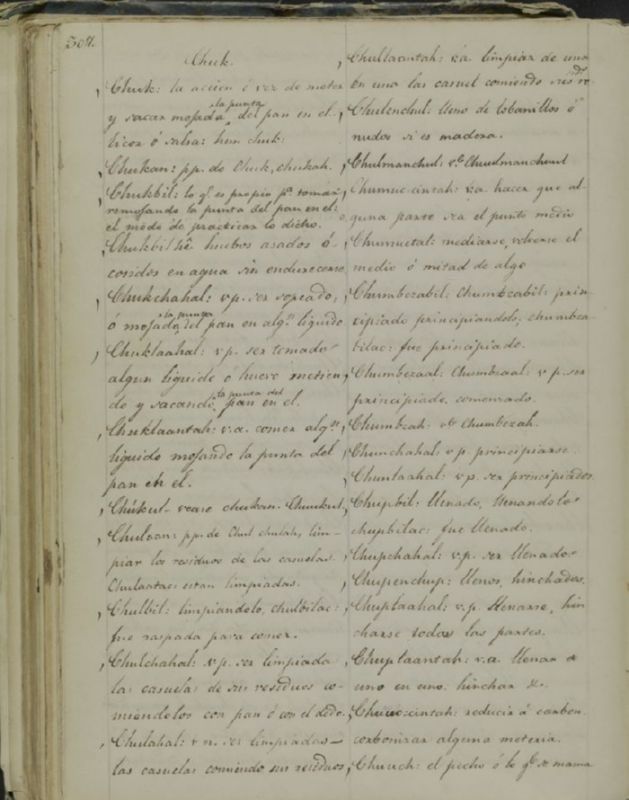 307.
Chuk.
Chuk: la acción ó vez de meter
y sacar mojada la punta del pan en el
licor ó salsa: hun chuk:
Chukan: pp. de Chuk, chukah.
Chukbil: lo q.e es propio p.a tomar
remojando la punta del pan en el:
el modo de practicar lo dicho.
Chukbil hê huebos asados ó
cosidos en agua sin endurecerse
Chukchahal: v.p. ser sopeado,
ó mojada la punta del pan en alg.n liquido
Chuklaahal: v.p. ser tomado
algun liquido ó huevo metien
do y sacando la punta del pan en el.
Chuklaantah: v.a. comer alg.n
liquido mojando la punta del
pan en el.
Chukul vease chukan. Chuukul,
Chulaan: pp. de Chul chulah, lim-
piar los residuos de las casuelas.
Chulaatac: estan limpiadas.
Chulbil: limpiandolo, chulbilac:
fue raspada para comer.
Chulchahal: v.p. ser limpiada
la casuela de sus residuos co-
miendolos con pan ó con el dedo.
Chulahal: v.n. ser limpiadas
las casuelas comiendo sus residuos,
Chullaantah: v.a. limpiar de una
en una las casuelas comiendo sus re-
sid.s
Chulenchul: lleno de lobanillos ó
nudos si es madera.
Chulmanchul: v.e Chuulmanchuul
Chumuc cintah: v.a. hacer que al-
guna parte sea el punto medio
Chumuctal: mediarse, volverse el
medio ó mitad de algo
Chumbezabil: Chumbzabil: prin-
cipiado principiandolo; chumbza-
bilac: fue principiado.
Chumbezaal: Chumbzaal: v.p. ser
principiado, comenzado.
Chumbzah: v.e Chumbezah.
Chunchahal v.p. principiarse.
Chunlaahal: v.p. ser principiados.
Chupbil: llenado, llenandolo
chupbilac: fue llenado.
Chupchahal: v.p. ser llenado
Chupenchup: llenos, hinchados.
Chuplaahal: v.p. llenarse, hin
charse todas las partes.
Chuplaantah: v.a. llenar de
uno en uno. hinchar &.
Chuuc cintah: reducir á carbon
carbonizar alguna materia.
Chuuch: el pecho ó lo q.e se mama